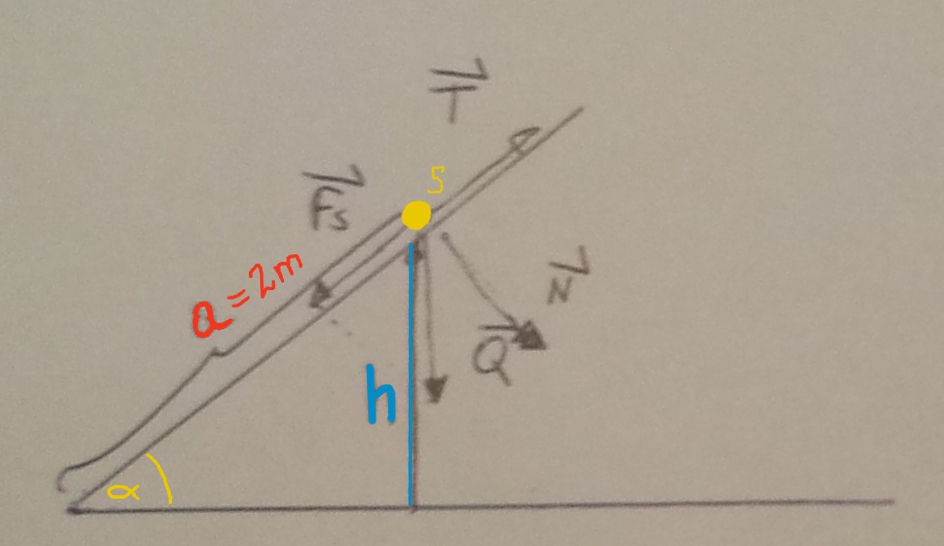 T
S
Fs
a=2m
N
Q
h
α